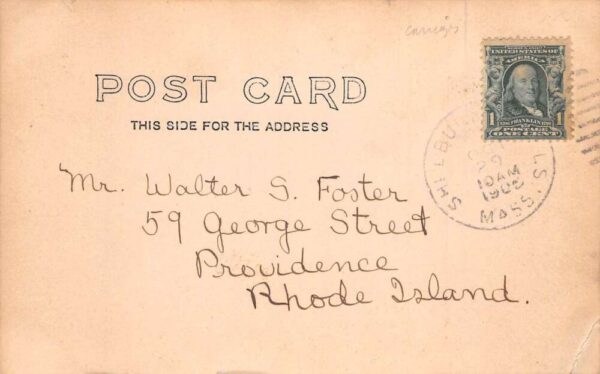 Carriages
POST CARD
THIS SIDE FOR THE ADDRESS
SERIES 1902
UNITED STATES OF
AMERICA
1 FRANKLIN 1
POSTAGE
ONE CENT
SHELBU LS
29
10 AM
MASS.
Mr. Walter S. Foster
59 George Street
Providence
Rhode Island.